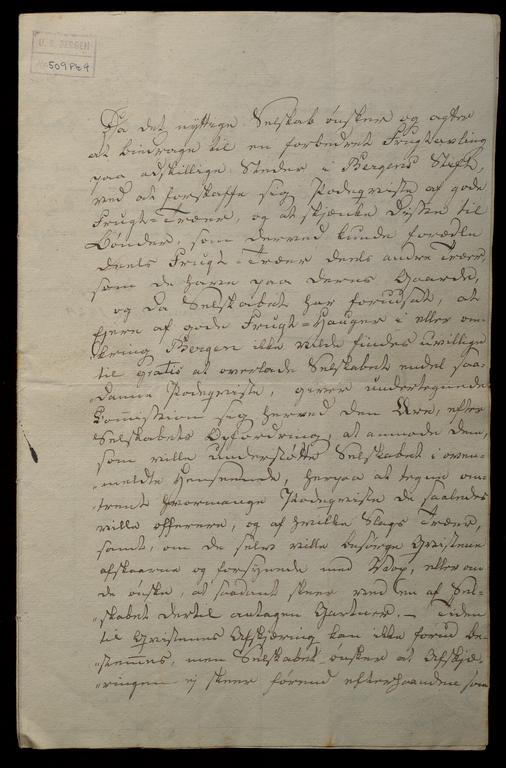 U. B. BERGEN
509 Pk 9
Da det nyttige Selskab ønsker og agter
at bidrage til en forbedret Frugtavling
paa adskillige Steder i Bergens Stift,
ved at forskaffe sig Podeqviste af gode
Frugt-Træer, og at skjænke disse til
Bønder, som derved kunde forædle
deels Frugt-Træer deels andre Træer,
som de have paa deres Gaarde,
og da Selskabet har forudsat, at
Ejere af gode Frugt-Hauger i eller om-
kring Bergen ikke vilde findes uvillige
til gratis at overlade Selskabet endel saa-
danne Podeqviste, giver undertegnede
Commission sig herved den Ære, efter
Selskabets Opfordring, at anmode dem,
som ville understøtte Selskabet i oven-
"meldte Henseende, herpaa at tegne om-
trent hvormange Podeqviste de saaledes
ville offerere, og af hvilke Slags Træer,
samt, om de selv ville besørge Qvistene
afskaarne og forsynede med Vox, eller om
de ønske, at saadant skeer ved en af Sel-
"skabet dertil antagen Gartner. – Tiden
til Qvistenes Afskjæring kan ikke forud be-
"stemmes, men Selskabet ønsker at Afskjæ-
"ringen ej skeer førend efterhaanden som